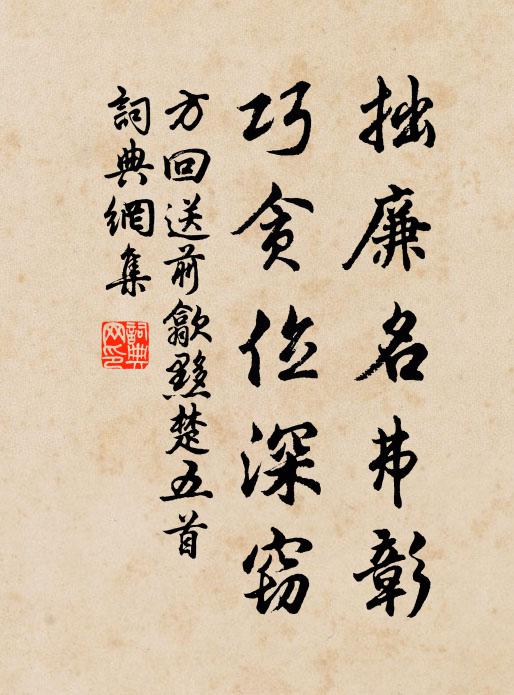 拙廉名弗彰
巧贪位深窃
方回送前歙黟楚五首
詞典網集
詞典网印